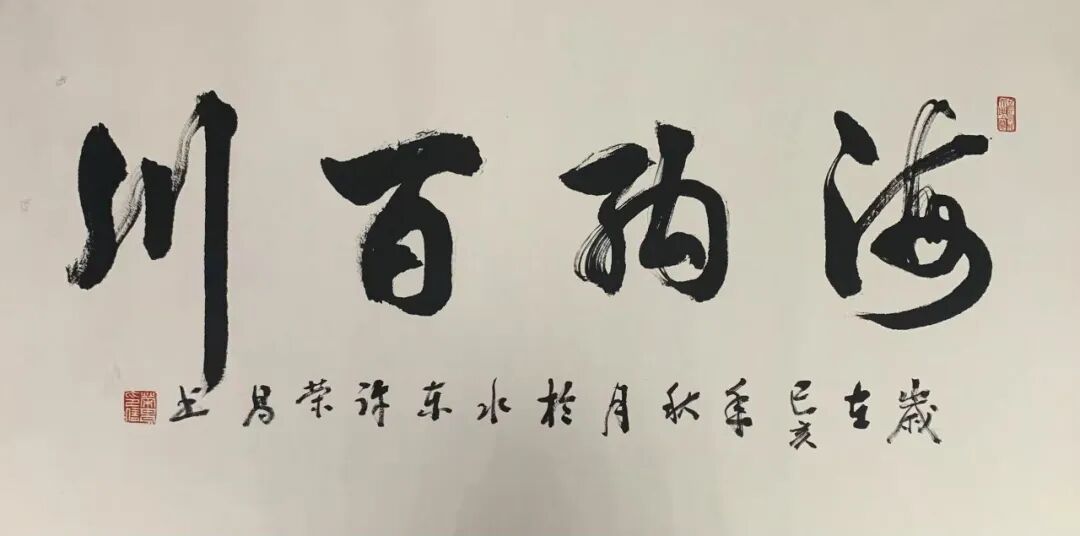 海纳百川
歲在己亥年秋月於水东许荣昌书